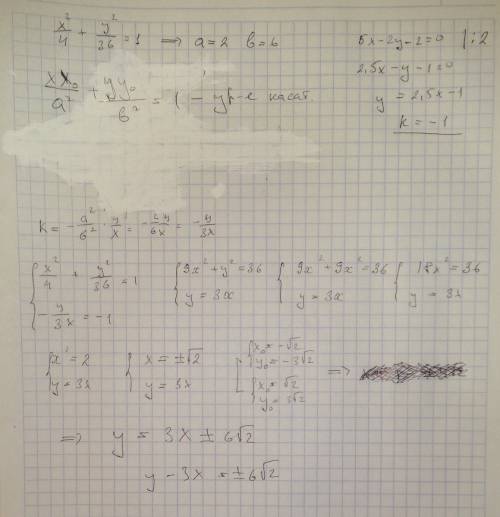 x²/4 + y²/36 = 1 ⟹ a = 2 b = 6
5x - 2y - 2 = 0 | : 2
2,5x - y - 1 = 0
y = 2,5x - 1
k = -1
xx₀/a² + yy₀/b² = 1 - ур-е касат.
k = - a²/b² · y/x = - 2y/6x = - y/3x
{ x²/4 + y²/36 = 1 { 9x² + y² = 36 { 9x² + 9x² = 36 { 18x² = 36
- y/3x = -1 y = 3x y = 3x y = 3x
{ x² = 2 { x = ±√2 [ { x₀ = -√2
y = 3x y = 3x y₀ = -3√2 ⟹
{ x₀ = √2
y₀ = 3√2
⟹ y = 3x ± 6√2
y - 3x = ±6√2